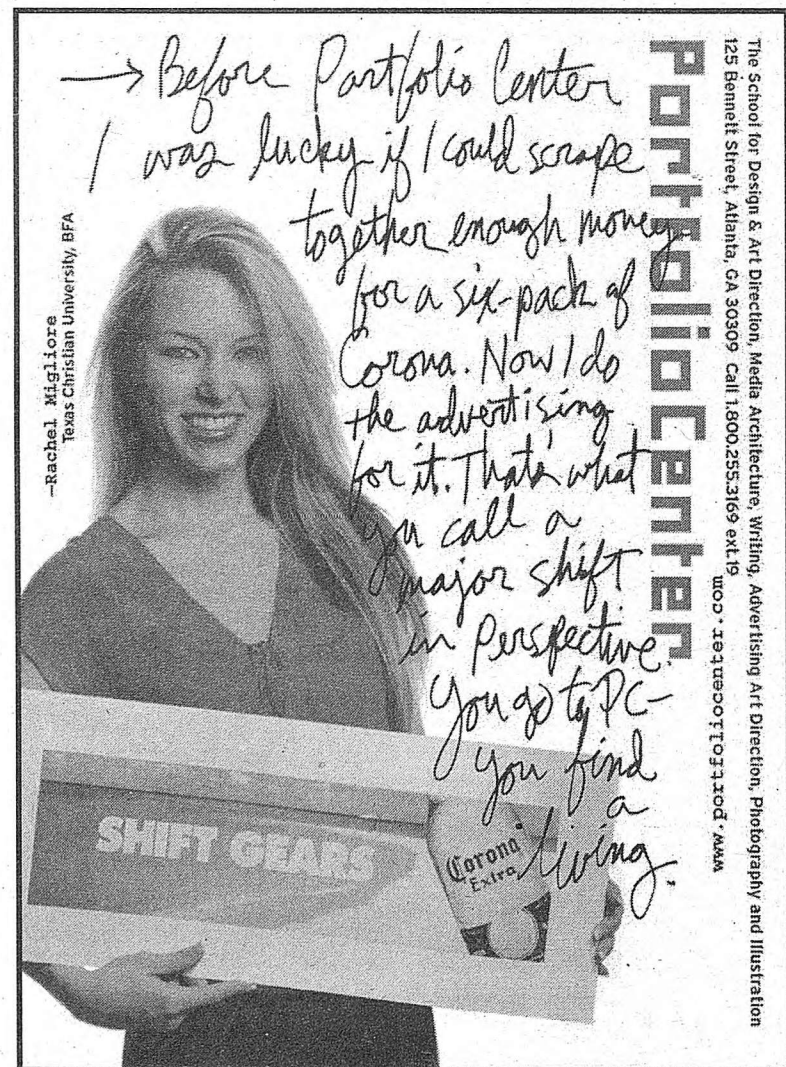 → Before Portfolio Center
I was lucky if I could scrape
together enough money
for a six-pack of
Corona. Now I do
the advertising
for it. That's what
you call a
major shift
in perspective.
You go to PC-
you find
a
living.
—Rachel Migliore
Texas Christian University, BFA
SHIFT GEARS
Corona
Extra
PortfolioCenter
The School for Design & Art Direction, Media Architecture, Writing, Advertising Art Direction, Photography and Illustration
125 Bennett Street, Atlanta, GA 30309 Call 1.800.255.3169 ext.19
www.portfoliocenter.com